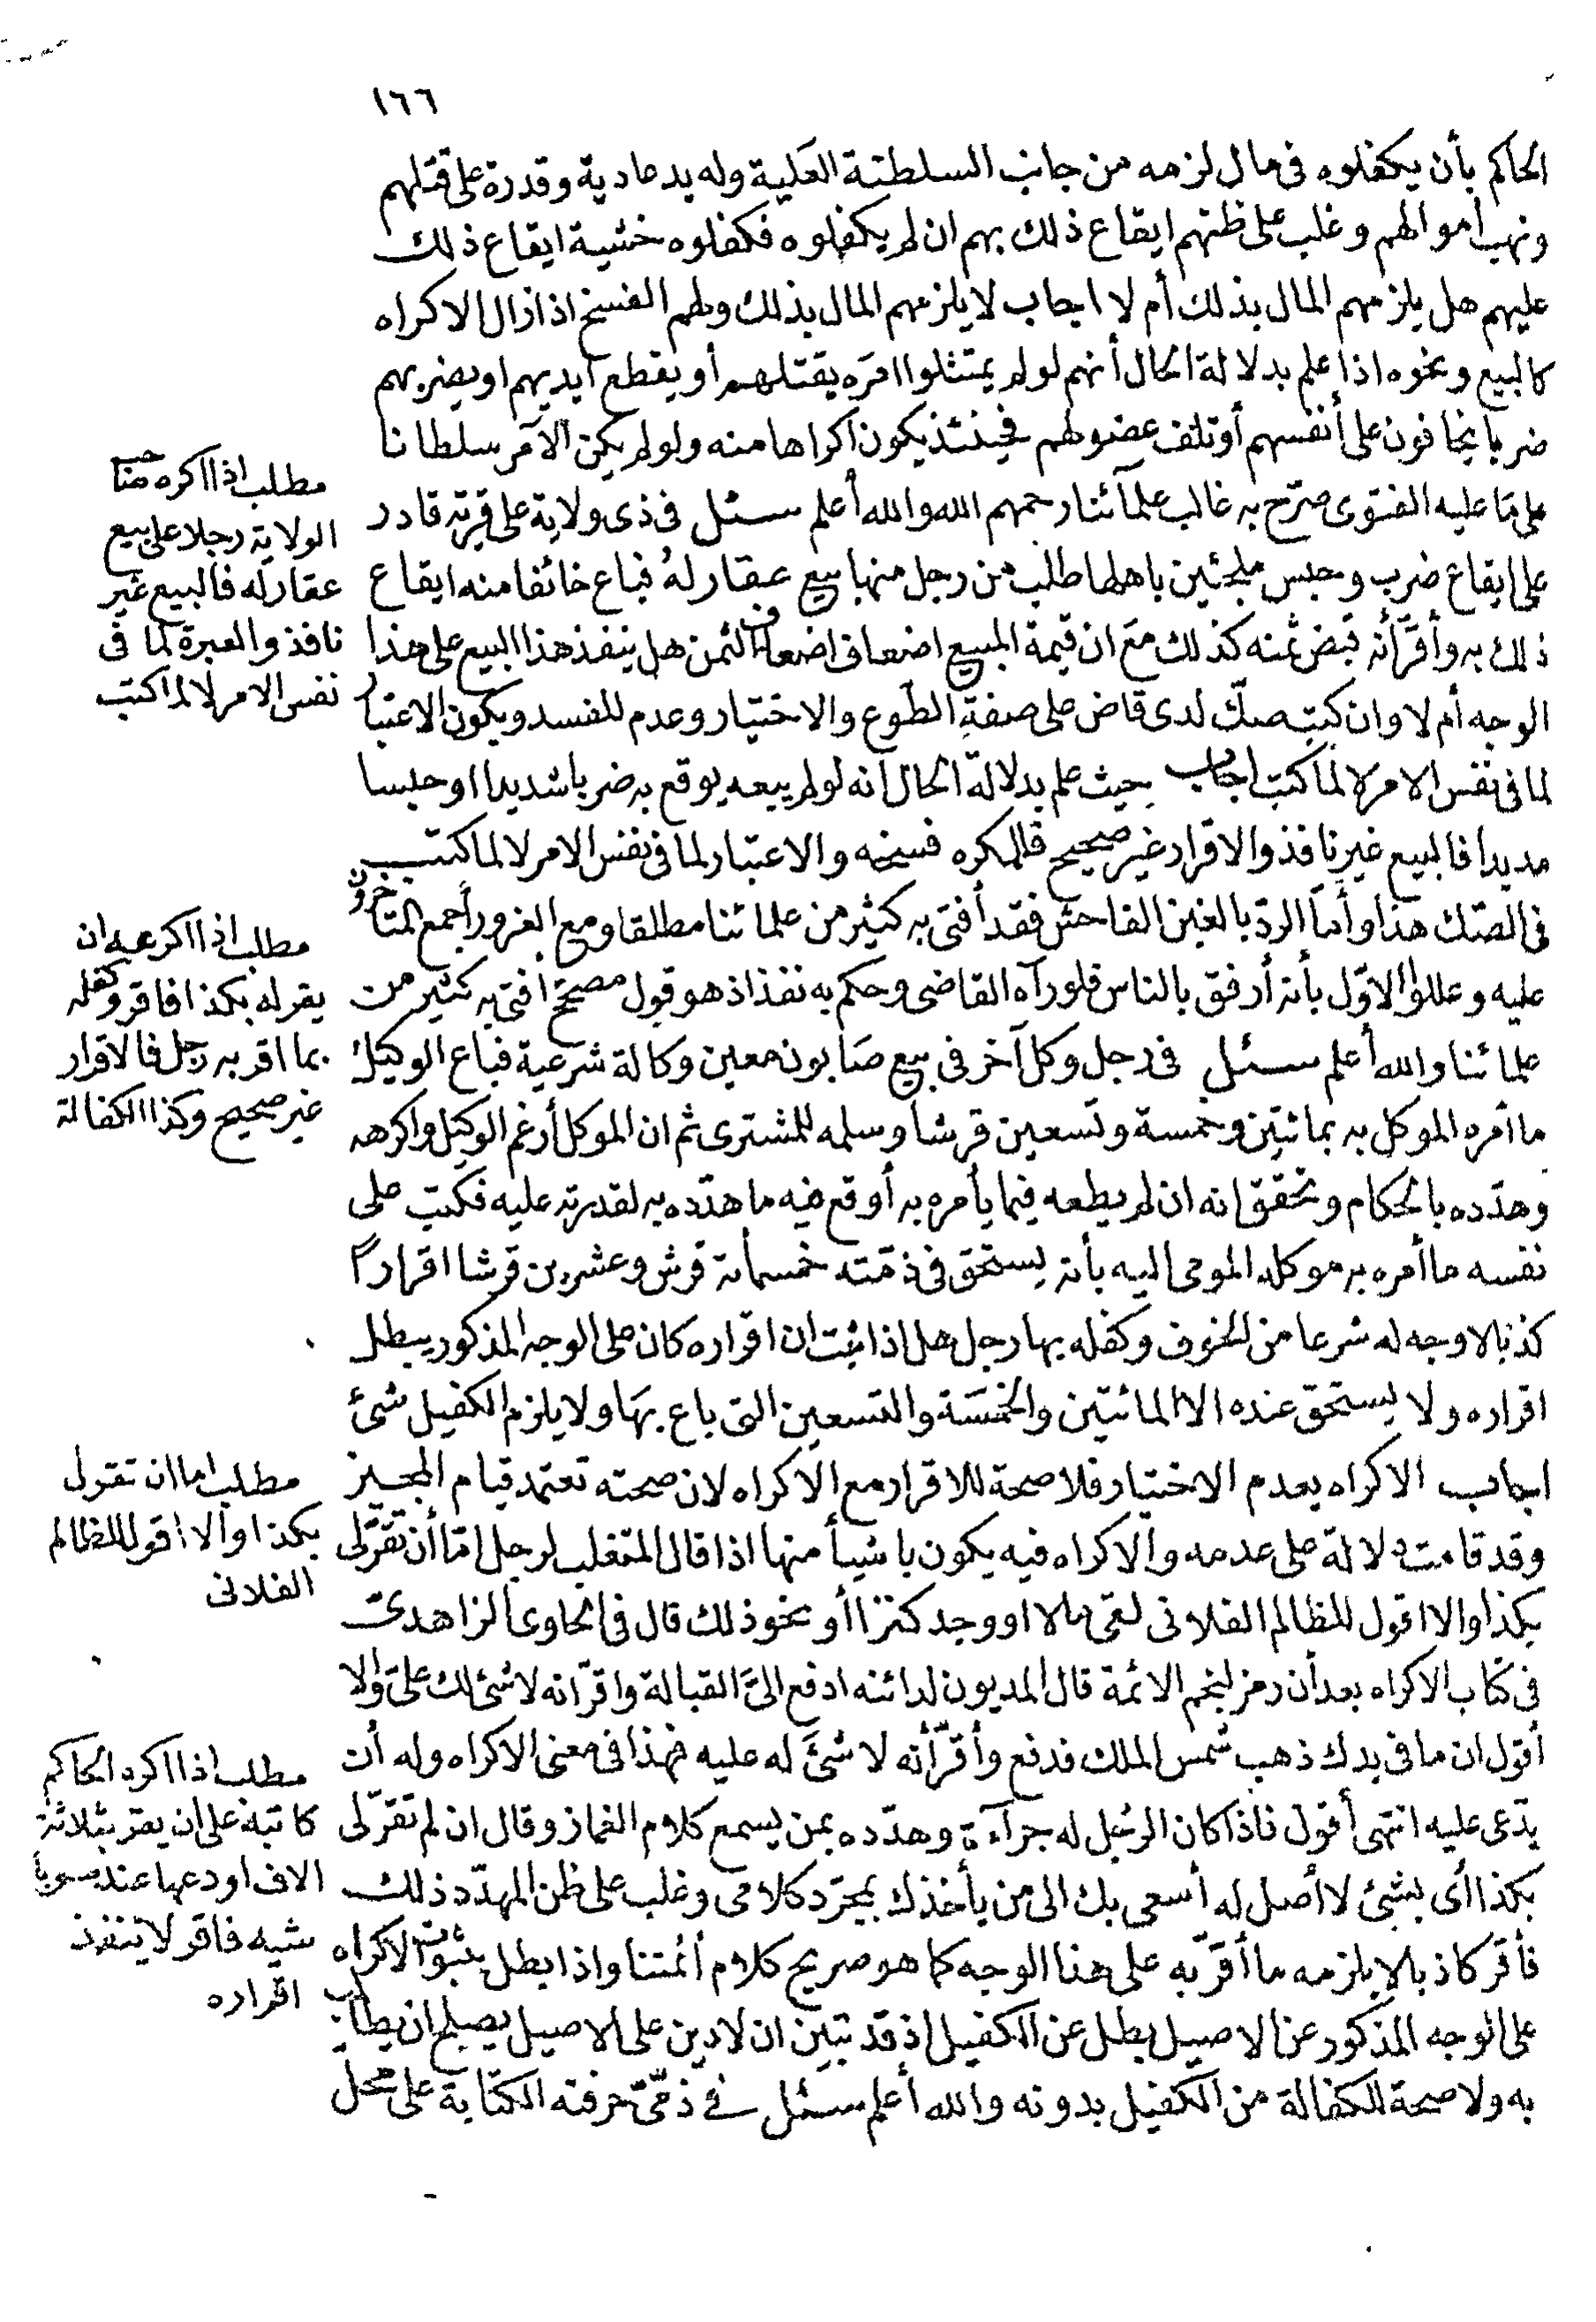 ١٦٦
الحاكم بأن يكفلوه فى مال لزمه من جانب السلطنة العلية وله يد عادية وقدرة على قتلهم
ونهب أموالهم وغلب على ظنهم ايقاع ذلك بهم ان لم يكفلوه فكفلوه خشية ايقاع ذلك
عليهم هل يلزمهم المال بذلك أم لا اجاب لا يلزمهم المال بذلك ولهم الفسخ اذا زال الاكراه
كالبيع ونحوه اذا علم بدلالة الحال أنهم لو لم يمتثلوا امره يقتلهم أو يقطع أيديهم او يضربهم
ضربا يخافون على أنفسهم أو تلف عضو لهم فحينئذ يكون اكراها منه ولو لم يكن الآمر سلطانا
على ما عليه الفتوى صرّح به غالب علمائنا رحمهم الله والله أعلم سئل فى ذى ولاية على قرية قادر
على ايقاع ضرب وحبس ملجئين باهلها طلب من رجل منها بيع عقار له فباع خائفا منه ايقاع
ذلك به وأقرّ أنه قبض ثمنه كذلك مع ان قيمة المبيع اضعاف اضعاف الثمن هل ينفذ هذا البيع على هذا
الوجه أم لا وان كتب صكّ لدى قاض على صفة الطوع والاختيار وعدم المفسد ويكون الاعتبار
لما فى نفس الامر لا لما كتب اجاب حيث علم بدلالة الحال انه لو لم يبعه يوقع به ضربا شديدا او حبسا
مديدا فالبيع غير نافذ والاقرار غير صحيح فللمكره فسخه والاعتبار لما فى نفس الامر لا لما كتب
فى الصك هذا وأما الردّ بالغبن الفاحش فقد أفتى به كثير من علمائنا مطلقا ومع الغرور أجمع المتأخرون
عليه وعللوا الاوّل بأنه أرفق بالناس فلو رآه القاضى وحكم به نفذ اذ هو قول مصحح افتى به كثير من
علمائنا والله أعلم سئل فى رجل وكل آخر فى بيع صابون معين وكالة شرعية فباع الوكيل
ما أمره الموكل به بمائتين وخمسة وتسعين قرشا وسلمه للمشترى ثم ان الموكل أرغم الوكيل واكرهه
وهدّده بالحكام وتحقق انه ان لم يطعه فيما يأمره به أوقع فيه ما هدّده به لقدرته عليه فكتب على
نفسه ما أمره به موكله المومى اليه بأنه يستحق فى ذمّته خمسمائة قرش وعشرين قرشا اقرارا
كذبا لا وجه له شرعا من الخوف وكفله بها رجل هل اذا ثبت ان اقراره كان على الوجه المذكور يبطل
اقراره ولا يستحق عنده الا المائتين والخمسة والتسعين التى باع بها ولا يلزم الكفيل شئ
اجاب الاكراه يعدم الاختيار فلا صحة للاقرار مع الاكراه لان صحته تعتمد قيام المجيز
وقد قامت دلالة على عدمه والاكراه فيه يكون باشيأ منها اذا قال المتغلب لرجل امّا أن تقرّ لى
بكذا والا اقول للظالم الفلانى لقى مالا او وجد كنزا أو نحو ذلك قال فى الحاوى الزاهدىّ
فى كتاب الاكراه بعد أن رمز لنجم الائمة قال المديون لدائنه ادفع الىّ القبالة واقرّ انه لا شئ لك علىّ والا
أقول ان ما فى يدك ذهب شمس الملك فدفع وأقرّ أنه لا شئ له عليه فهذا فى معنى الاكراه وله أن
يدّعى عليه انتهى أقول فاذا كان الرجل له جراءة وهدّده بمن يسمع كلام الغماز وقال ان لم تقرّ لى
بكذا أى بشئ لا أصل له أسعى بك الى من يأخذك بمجرّد كلامى وغلب على ظن المهدّد ذلك
فأقر كاذبا لا يلزمه ما أقرّ به على هذا الوجه كما هو صريح كلام أئمتنا واذا بطل بثبوت الاكراه
على الوجه المذكور عن الاصيل بطل عن الكفيل اذ قد تبين ان لا دين على الاصيل يصلح ان يطالب
به ولا صحة للكفالة من الكفيل بدونه والله أعلم سئل فى ذمّىّ حرفته الكتابة على محل
مطلب اذا اكره صاحب
الولاية رجلا على بيع
عقار له فالبيع غير
نافذ والعبرة لما فى
نفس الامر لا لما كتب
مطلب اذا اكرهه ان
يقر له بكذا فاقر وكفله
بما اقر به رجل فالاقرار
غير صحيح وكذا الكفالة
مطلب اما ان تقول
بكذا والا اقول للظالم
الفلانى
مطلب اذا اكره الحاكم
كاتبه على ان يقر بثلاثة
الاف اودعها عند
شيه فاقر لا ينفذ
اقراره